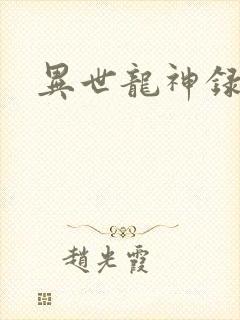 異世龍神録
趙光霞